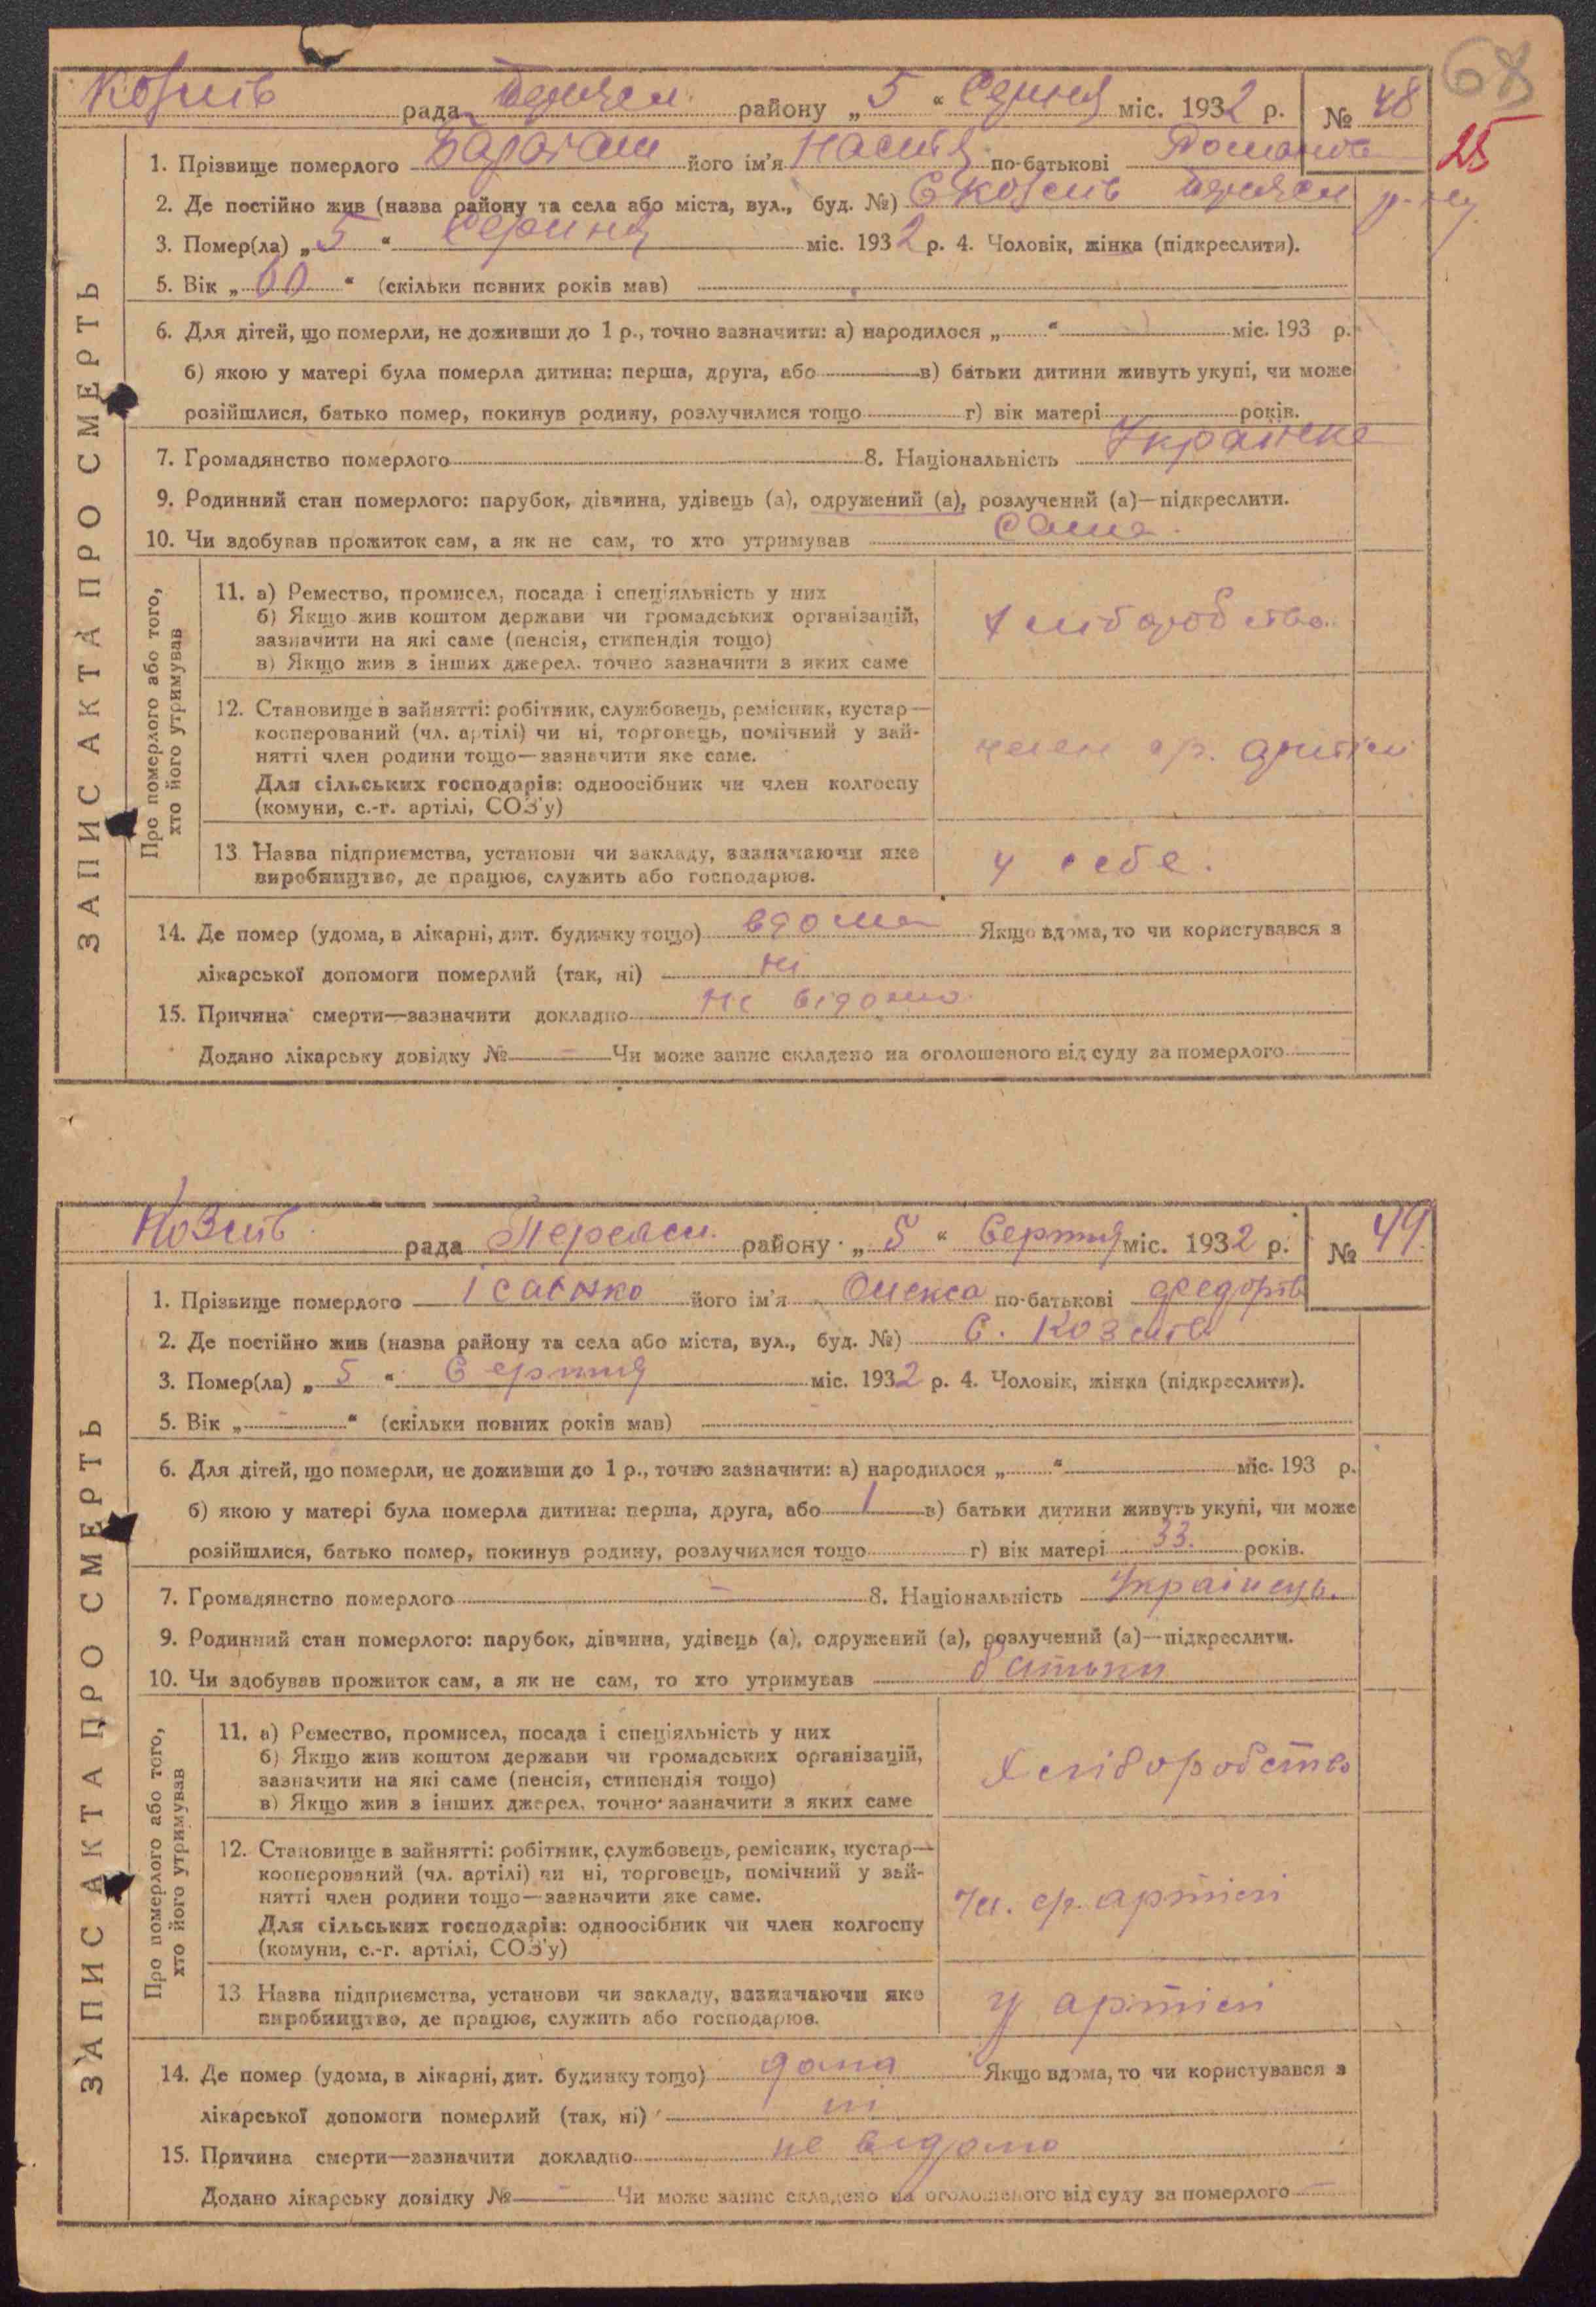 68
25
Козлів рада Переясл. району „ 5 “ Серпня міс. 1932 р. № 48
1. Прізвище померлого його ім'я Настя по-батькові Романів
2. Де постійно жив (назва району та села або міста, вул., буд. №) С Козлів р-ну
3. Помер(ла) „ 5 “ Серпня міс. 1932 р. 4. Чоловік, жінка (підкреслити).
5. Вік „ 60 “ (скільки повних років мав)
6. Для дітей, що померли, не доживши до 1 р., точно зазначити: а) народилося „ “ міс. 193 р.
б) якою у матері була померла дитина: перша, друга, або в) батьки дитини живуть укупі, чи може
розійшлися, батько помер, покинув родину, розлучилися тощо г) вік матері років.
7. Громадянство померлого 8. Національність Українка
9. Родинний стан померлого: парубок, дівчина, удівець (а), одружений (а), розлучений (а)—підкреслити.
10. Чи здобував прожиток сам, а як не сам, то хто утримував сама
ЗАПИС АКТА ПРО СМЕРТЬ
Про померлого або того, хто його утримував
11. а) Ремество, промисел, посада і спеціяльність у них
б) Якщо жив коштом держави чи громадських організацій,
зазначити на які саме (пенсія, стипендія тощо)
в) Якщо жив з інших джерел, точно зазначити з яких саме
хліборобство
12. Становище в зайнятті: робітник, службовець, ремісник, кустар—
кооперований (чл. артілі) чи ні, торговець, помічний у зай-
нятті член родини тощо—зазначити яке саме.
Для сільських господарів: одноосібник чи член колгоспу
(комуни, с.-г. артілі, СОЗ'у)
член ср. артілі
13 Назва підприємства, установи чи закладу, зазначаючи яке
виробництво, де працює, служить або господарює.
у себе.
14. Де помер (удома, в лікарні, дит. будинку тощо) вдома Якщо вдома, то чи користувався з
лікарської допомоги померлий (так, ні) ні
15. Причина смерти—зазначити докладно не відомо
Додано лікарську довідку № — Чи може запис складено на оголошеного від суду за померлого
Козлів рада Переясл. району „ 5 “ Серпня міс. 1932 р. № 49
1. Прізвище померлого Ісаєнко його ім'я Олекса по-батькові Федорів
2. Де постійно жив (назва району та села або міста, вул., буд. №) С. Козлів
3. Помер(ла) „ 5 “ Серпня міс. 1932 р. 4. Чоловік, жінка (підкреслити).
5. Вік „ — “ (скільки повних років мав)
6. Для дітей, що померли, не доживши до 1 р., точно зазначити: а) народилося „ “ міс. 193 р.
б) якою у матері була померла дитина: перша, друга, або 1 в) батьки дитини живуть укупі, чи може
розійшлися, батько помер, покинув родину, розлучилися тощо г) вік матері 33. років.
7. Громадянство померлого — 8. Національність Українець.
9. Родинний стан померлого: парубок, дівчина, удівець (а), одружений (а), розлучений (а)—підкреслити.
10. Чи здобував прожиток сам, а як не сам, то хто утримував батьки
ЗАПИС АКТА ПРО СМЕРТЬ
Про померлого або того, хто його утримував
11. а) Ремество, промисел, посада і спеціяльність у них
б) Якщо жив коштом держави чи громадських організацій,
зазначити на які саме (пенсія, стипендія тощо)
в) Якщо жив з інших джерел, точно зазначити з яких саме
Хліборобство
12. Становище в зайнятті: робітник, службовець, ремісник, кустар—
кооперований (чл. артілі) чи ні, торговець, помічний у зай-
нятті член родини тощо—зазначити яке саме.
Для сільських господарів: одноосібник чи член колгоспу
(комуни, с.-г. артілі, СОЗ'у)
чл. ср. артілі
13 Назва підприємства, установи чи закладу, зазначаючи яке
виробництво, де працює, служить або господарює.
у артілі
14. Де помер (удома, в лікарні, дит. будинку тощо) дома Якщо вдома, то чи користувався з
лікарської допомоги померлий (так, ні) ні
15. Причина смерти—зазначити докладно не відомо
Додано лікарську довідку № — Чи може запис складено на оголошеного від суду за померлого —